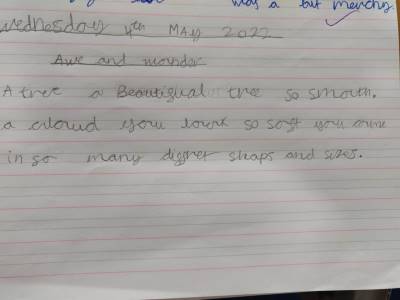 was a bit menchy
Wednesday 4th MAy 2022
Awe and wonder
A tree a Beautigual tree so smooth.
a cloud you louk so sogt you come
in so many digget shaps and sizes.